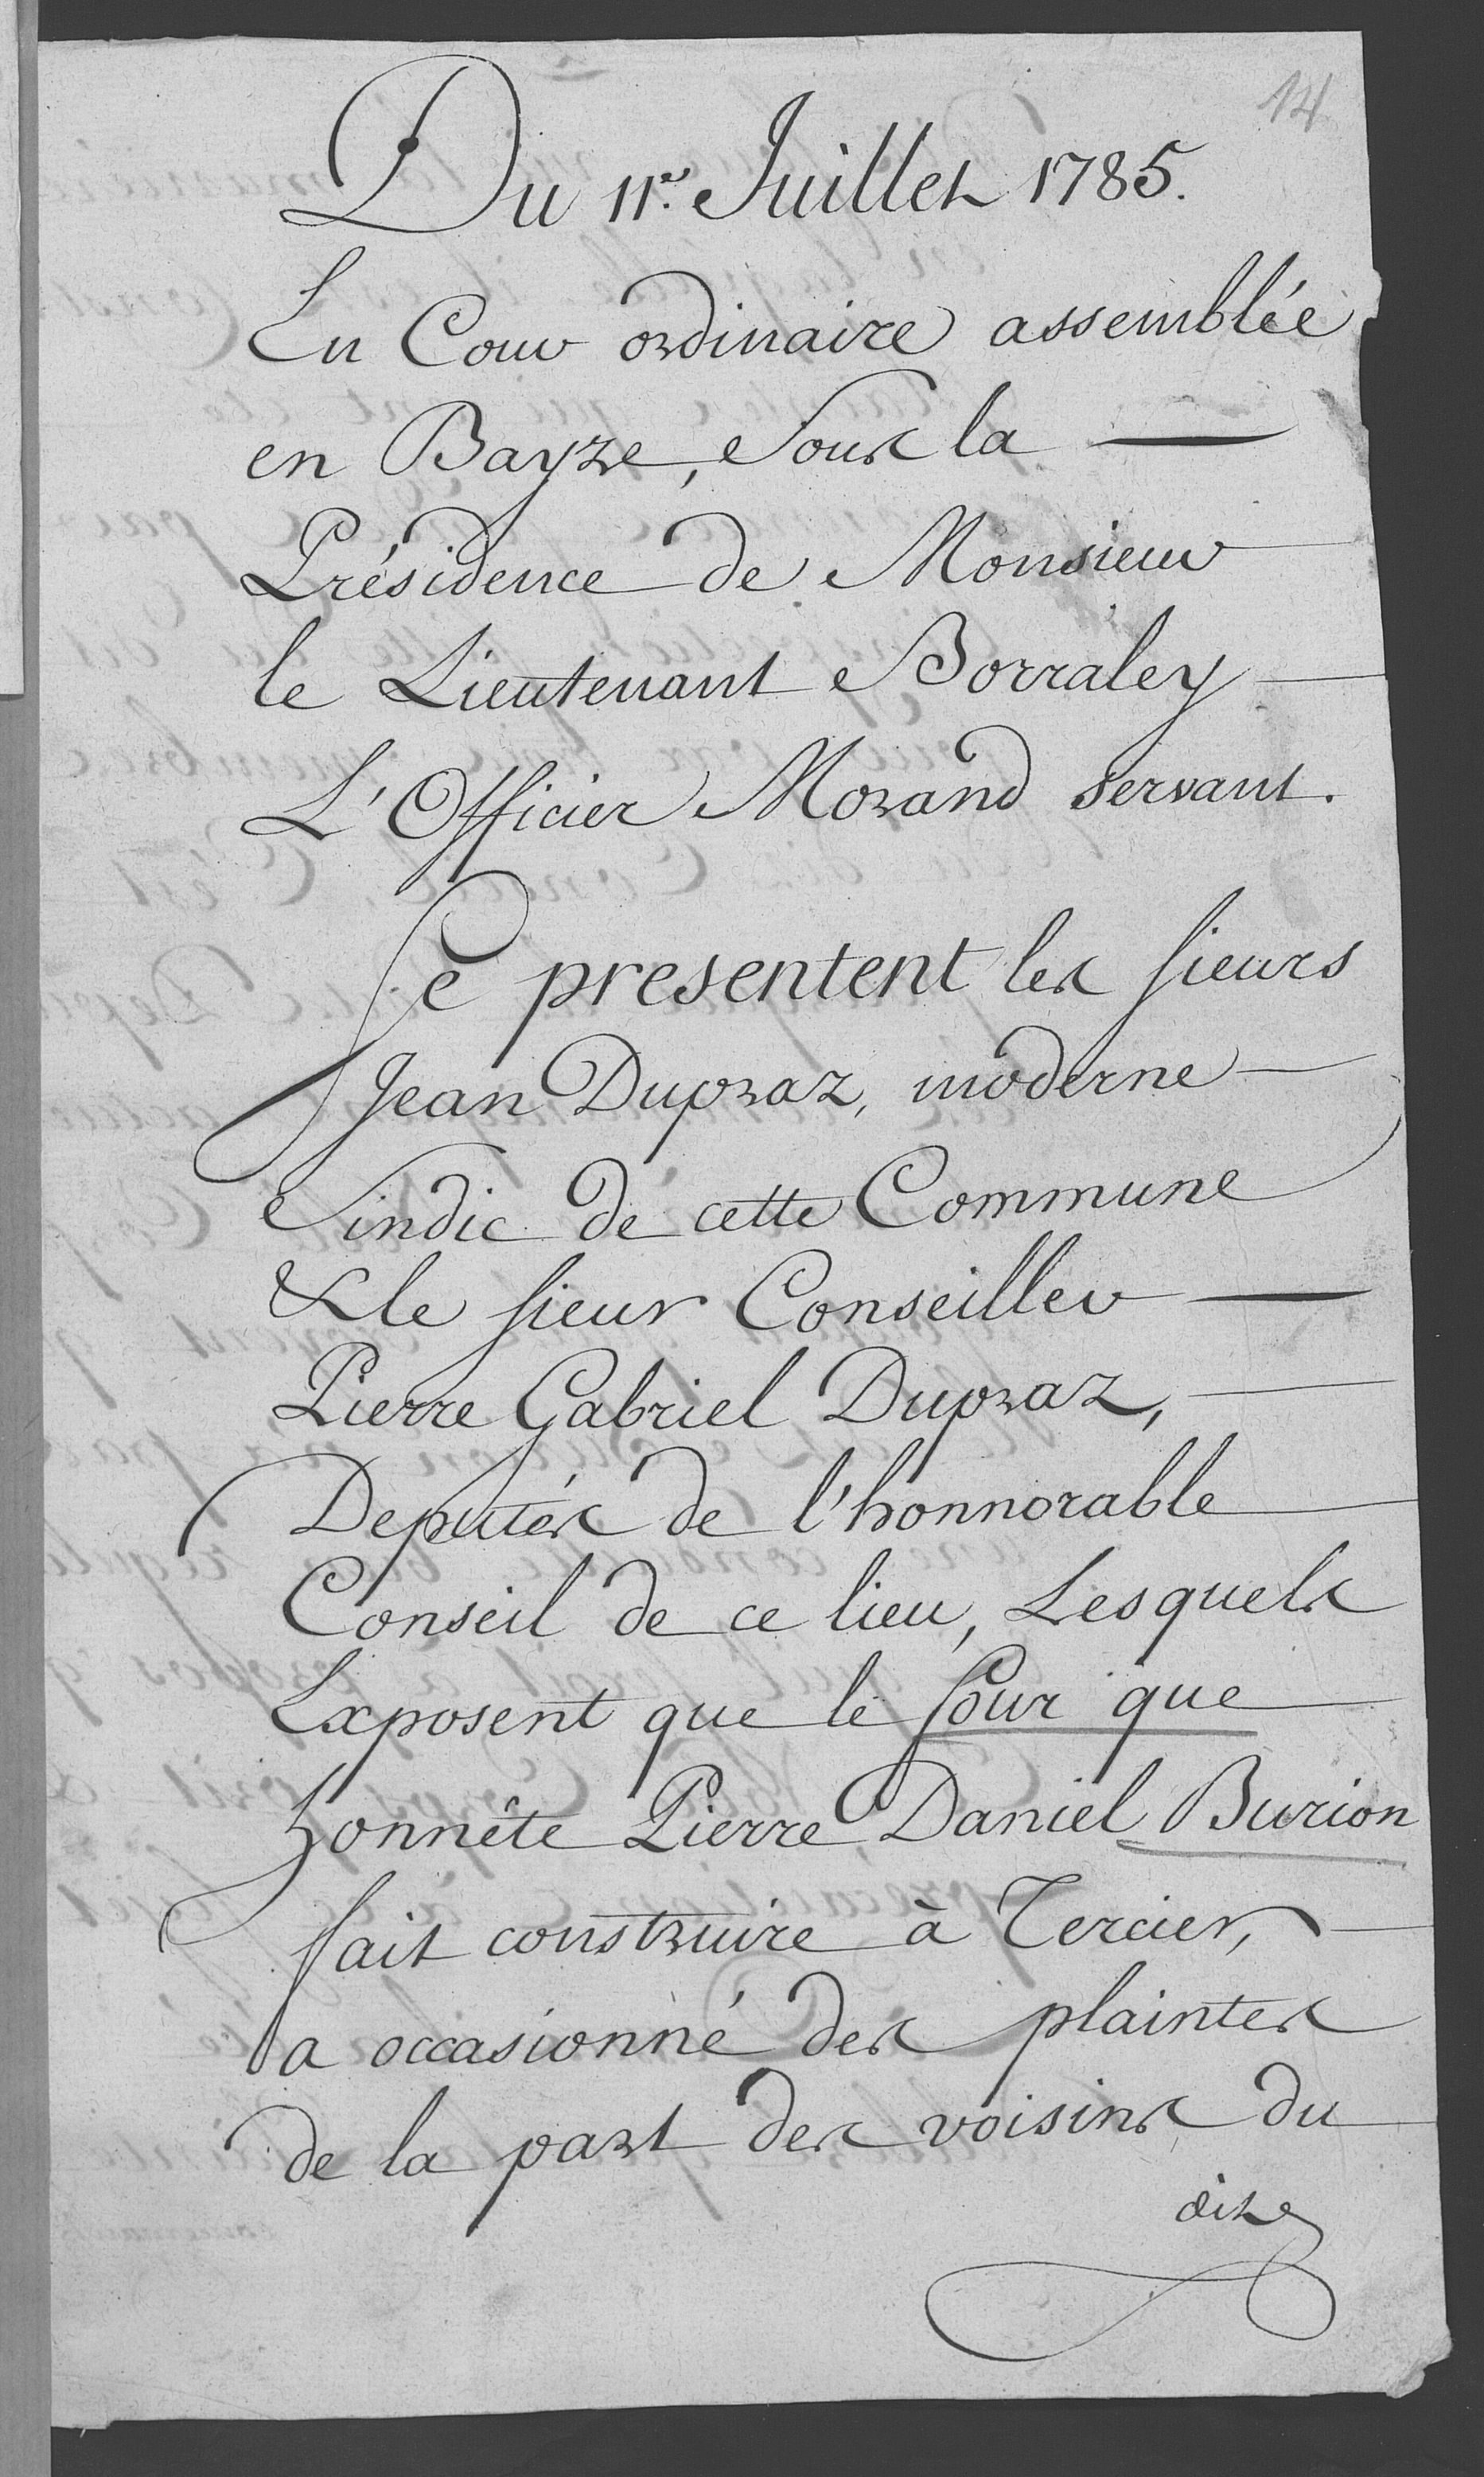 14
Du 11.e Juillet 1785.
En Cour ordinaire assemblée
en Bayze, Sous la
Présidence de Monsieur
le Lieutenant Borraley
L'Officier Morand servant.
Se presentent les sieurs
Jean Dupraz, moderne
Sindic de cette Commune
& le sieur Conseiller
Pierre Gabriel Dupraz,
Deputés de l'honnorable
Conseil de ce lieu, Lesquels
Exposent que le four que
honnête Pierre Daniel Burion
fait construire à Tercier,
a occasionné des plaintes
de la part des voisins du
dit